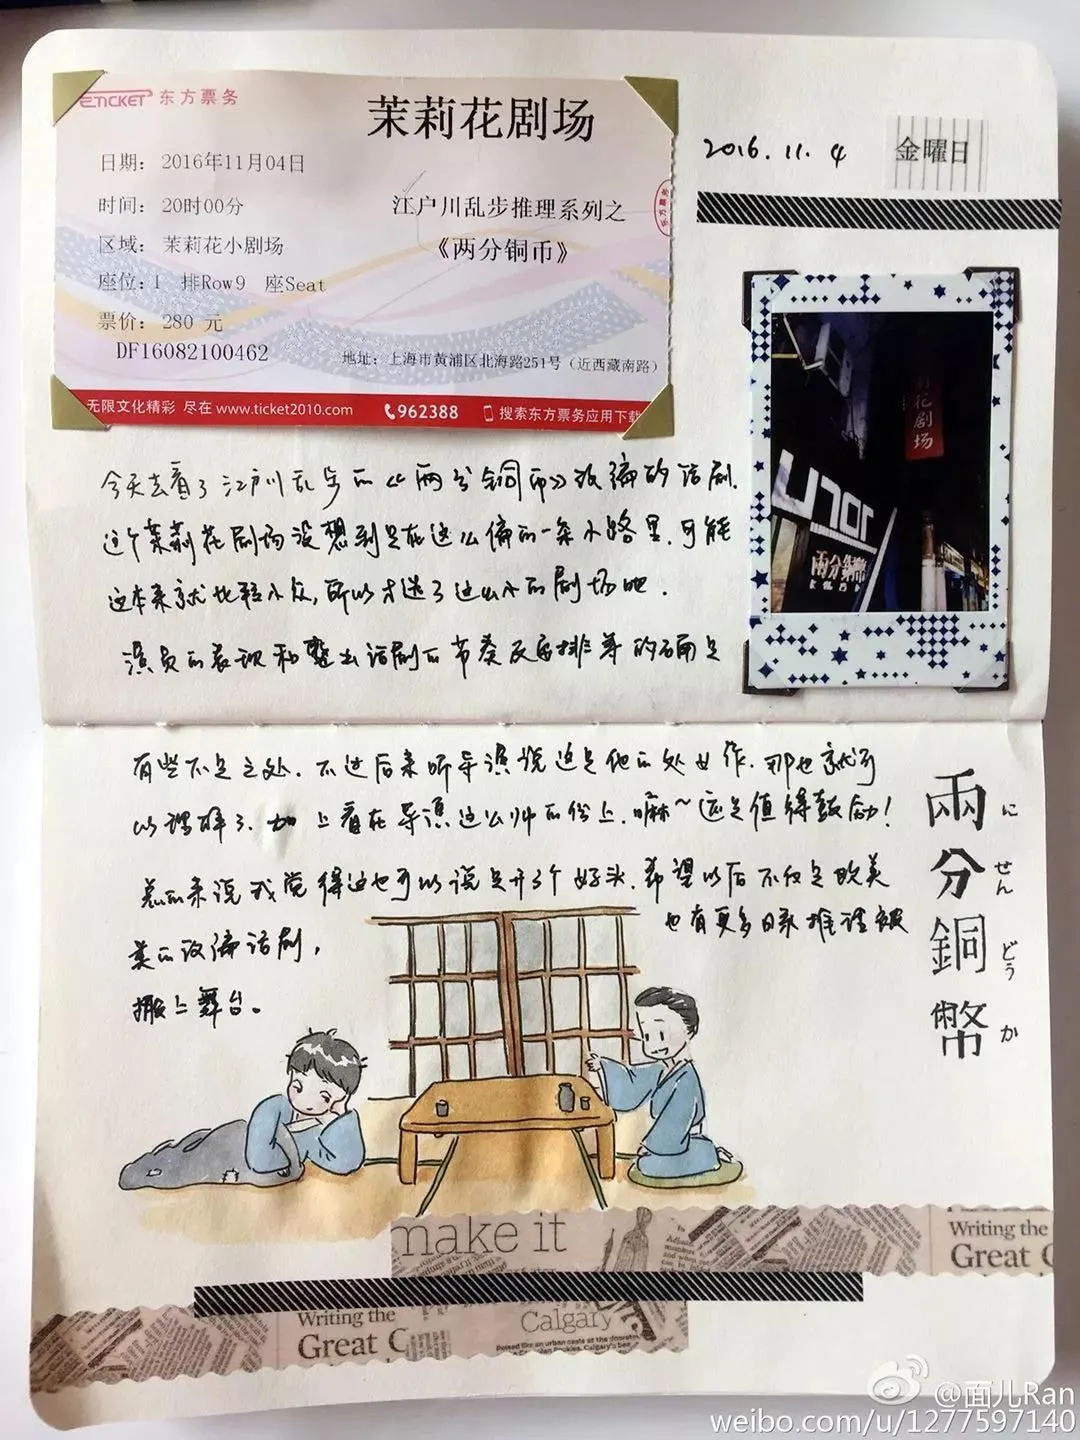 ETICKET 东方票务
茉莉花剧场
日期： 2016年11月04日
时间： 20时00分
江户川乱步推理系列之
区域： 茉莉花小剧场
《两分铜币》
座位：1 排Row9 座Seat
票价： 280 元
DF16082100462
地址：上海市黄浦区北海路251号（近西藏南路）
无限文化精彩 尽在 www.ticket2010.com 962388 搜索东方票务应用下载
东方票务
2016.11.4 金曜日
花剧场
兩分銅幣
今天去看了江户川乱步的《两分铜币》改编的话剧.
这个茉莉花剧场没想到是在这么偏的一条小路里.可能
这本来就比较小众,所以才选了这么小的剧场吧.
演员的表现和整出话剧的节奏及编排等的确是
有些不足之处.不过后来听导演说这是他的处女作.那也就可
以理解了.加上看在导演这么帅的份上.嘛~还是值得鼓励!
总的来说我觉得这也可以说是开了个好头.希望以后不仅是欧美
类的改编话剧,
也有更多日系推理被
搬上舞台。
兩分銅幣
に せん どう か
make it
Writing the
Great C
Writing the
Great C
Calgary
@面儿Ran
weibo.com/u/1277597140